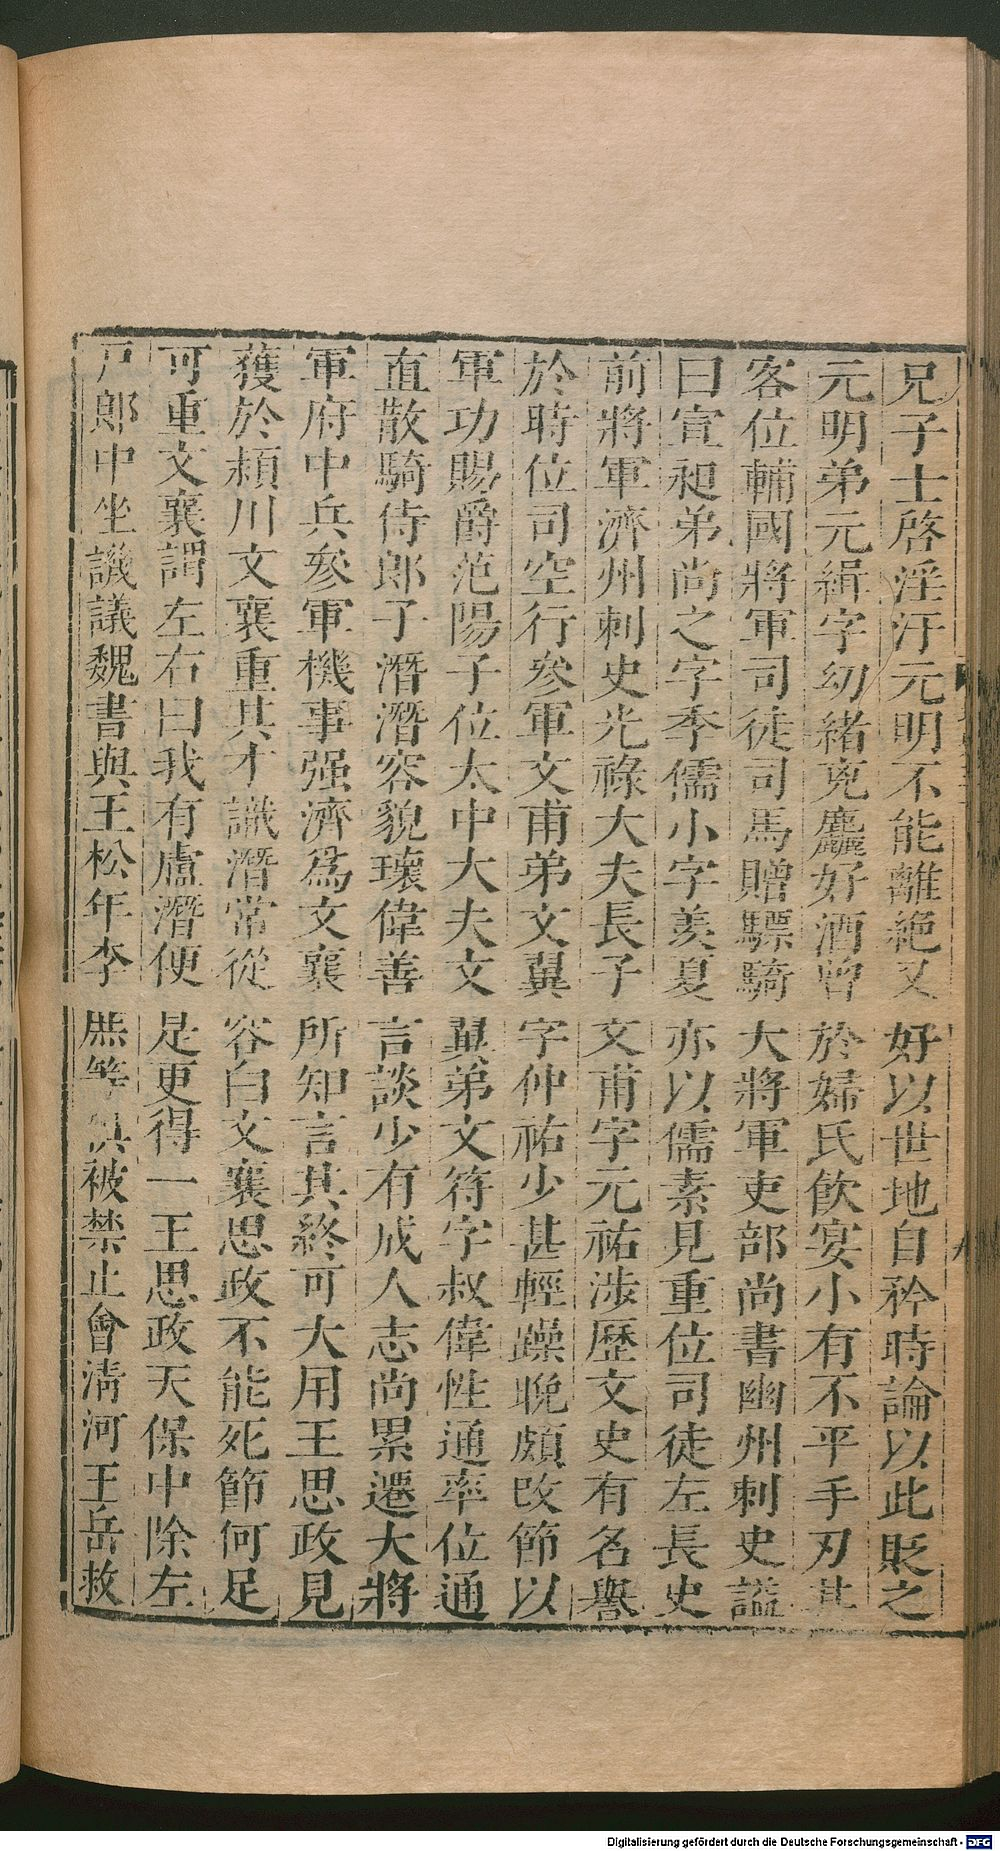 兄子士啓淫汙元明不能離絶又好以世地自矜時論以此貶之
元明弟元緝字幼緒兇麤好酒曾於婦氏飲宴小有不平手刃其
客位輔國將軍司徒司馬贈驃騎大將軍吏部尚書幽州刺史謚
曰宣昶弟尚之字季儒小字羨夏亦以儒素見重位司徒左長史
前將軍濟州刺史光祿大夫長子文甫字元祐涉歷文史有名譽
於時位司空行參軍文甫弟文翼字仲祐少甚輕躁晚頗改節以
軍功賜爵范陽子位太中大夫文翼弟文符字叔偉性通率位通
直散騎侍郎子潛潛容貌瓌偉善言談少有成人志尚累遷大將
軍府中兵參軍機事强濟爲文襄所知言其終可大用王思政見
獲於潁川文襄重其才識潛常從容白文襄思政不能死節何足
可重文襄謂左右曰我有盧潛便是更得一王思政天保中除左
戶郎中坐譏議魏書與王松年李庶等俱被禁止會清河王岳救
Digitalisierung gefördert durch die Deutsche Forschungsgemeinschaft - DFG